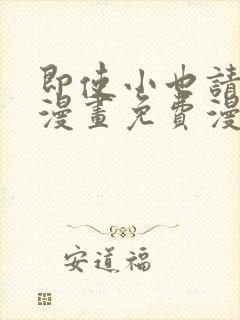 即使小也請
漫畫免費漫
安道福